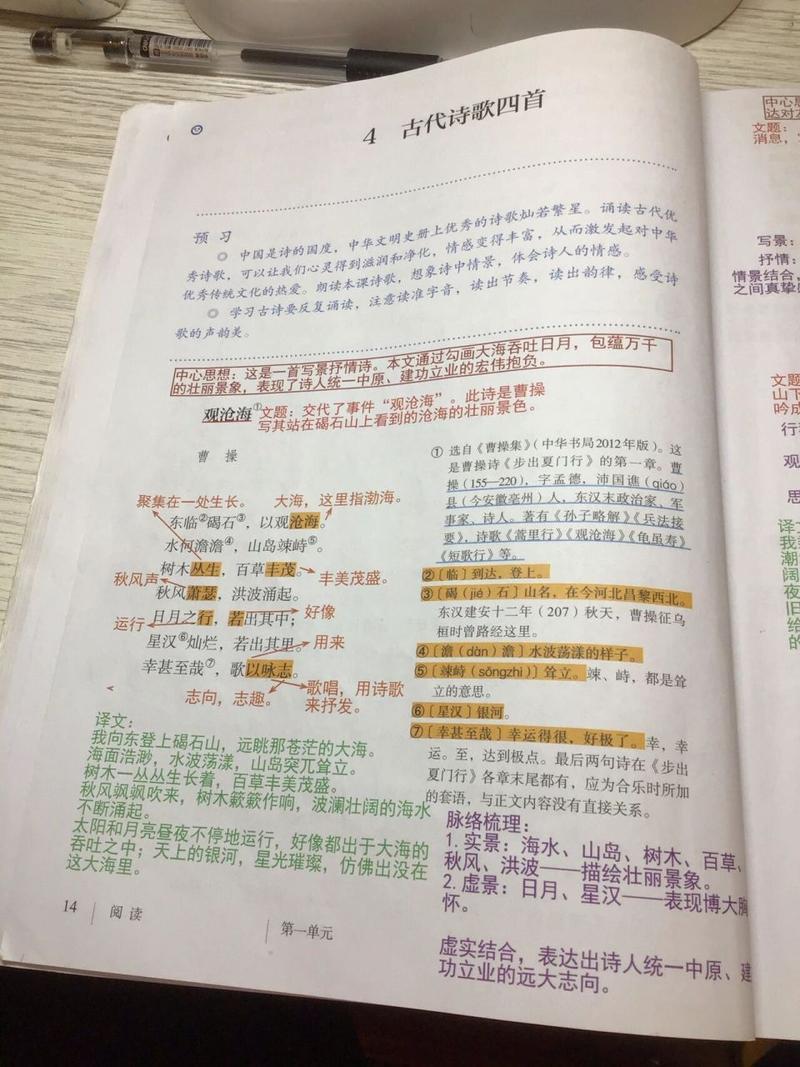 4 古代诗歌四首
预 习
◎ 中国是诗的国度，中华文明史册上优秀的诗歌灿若繁星。诵读古代优
秀诗歌，可以让我们心灵得到滋润和净化，情感变得丰富，从而激发起对中华
优秀传统文化的热爱。朗读本课诗歌，想象诗中情景，体会诗人的情感。
◎ 学习古诗要反复诵读，注意读准字音，读出节奏，读出韵律，感受诗
歌的声韵美。
中心思想：这是一首写景抒情诗。本文通过勾画大海吞吐日月，包蕴万千
的壮丽景象，表现了诗人统一中原、建功立业的宏伟抱负。
观沧海①
文题：交代了事件“观沧海”。此诗是曹操
写其站在碣石山上看到的沧海的壮丽景色。
曹 操
聚集在一处生长。
大海，这里指渤海。
东临②碣石③，以观沧海。
水何澹澹④，山岛竦峙⑤。
树木丛生，百草丰茂。
丰美茂盛。
秋风声
秋风萧瑟，洪波涌起。
日月之行，若出其中；
好像
运行
星汉⑥灿烂，若出其里。
用来
幸甚至哉⑦，歌以咏志。
志向，志趣。
歌唱，用诗歌
来抒发。
译文：
我向东登上碣石山，远眺那苍茫的大海。
海面浩渺，水波荡漾，山岛突兀耸立。
树木一丛丛生长着，百草丰美茂盛。
秋风飒飒吹来，树木簌簌作响，波澜壮阔的海水
不断涌起。
太阳和月亮昼夜不停地运行，好像都出于大海的
吞吐之中；天上的银河，星光璀璨，仿佛出没在
这大海里。
① 选自《曹操集》（中华书局2012年版）。这
是曹操诗《步出夏门行》的第一章。曹
操（155—220），字孟德，沛国谯（qiáo）
县（今安徽亳州）人，东汉末政治家、军
事家、诗人。著有《孙子略解》《兵法接
要》，诗歌《蒿里行》《观沧海》《龟虽寿》
《短歌行》等。
②〔临〕到达，登上。
③〔碣（jié）石〕山名，在今河北昌黎西北。
东汉建安十二年（207）秋天，曹操征乌
桓时曾路经这里。
④〔澹（dàn）澹〕水波荡漾的样子。
⑤〔竦峙（sǒngzhì）〕耸立。竦、峙，都是耸
立的意思。
⑥〔星汉〕银河。
⑦〔幸甚至哉〕幸运得很，好极了。幸，幸
运。至，达到极点。最后两句诗在《步出
夏门行》各章末尾都有，应为合乐时所加
的套语，与正文内容没有直接关系。
脉络梳理：
1. 实景：海水、山岛、树木、百草、
秋风、洪波——描绘壮丽景象。
2. 虚景：日月、星汉——表现博大胸
怀。
虚实结合，表达出诗人统一中原、建
功立业的远大志向。
14 阅 读
第一单元
中心思
达对
文题：
消息，
写景：
抒情：
情景结合，
之间真挚
文题
山下
吟成
行
观
译文
我
潮
阔
夜
旧
给
的